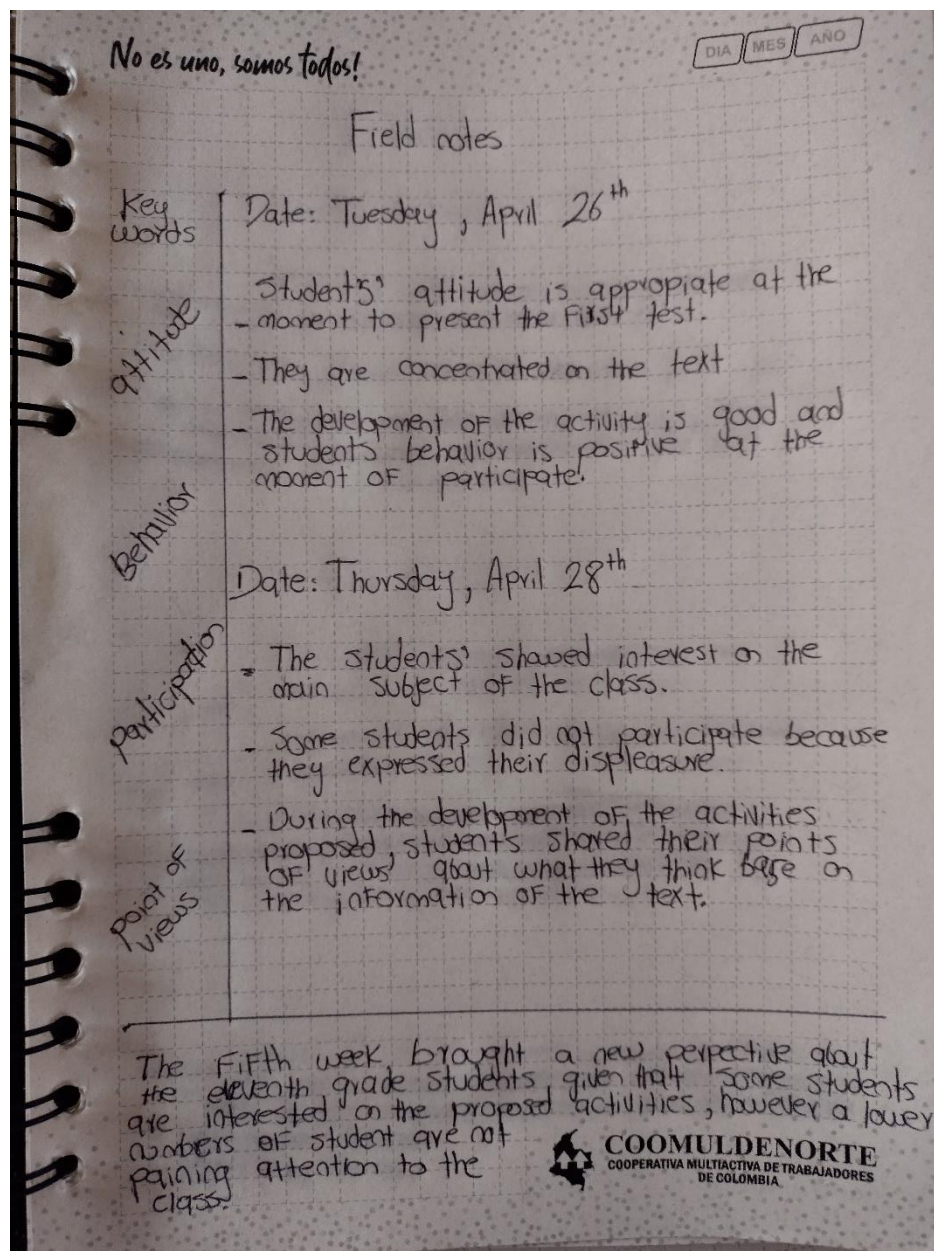 No es uno, somos todos!
DIA MES AÑO
Field notes
Key
words
Date: Tuesday, April 26th
Students' attitude is appropiate at the
- moment to present the first test.
attitude
- They are concentrated on the text
- The development of the activity is good and
students behavior is positive at the
moment of participate.
Behavior
Date: Thursday, April 28th
participation
- The students' showed interest on the
main subject of the class.
- Some students did not participate because
they expressed their displeasure.
- During the development of the activities
proposed, students shared their points
of views about what they think base on
the information of the text.
point of
views
The fifth week brought a new perpective about
the eleventh grade students, given that some students
are interested on the proposed activities, however a lower
numbers of student are not
paining attention to the
class.
COOMULDENORTE
COOPERATIVA MULTIACTIVA DE TRABAJADORES
DE COLOMBIA